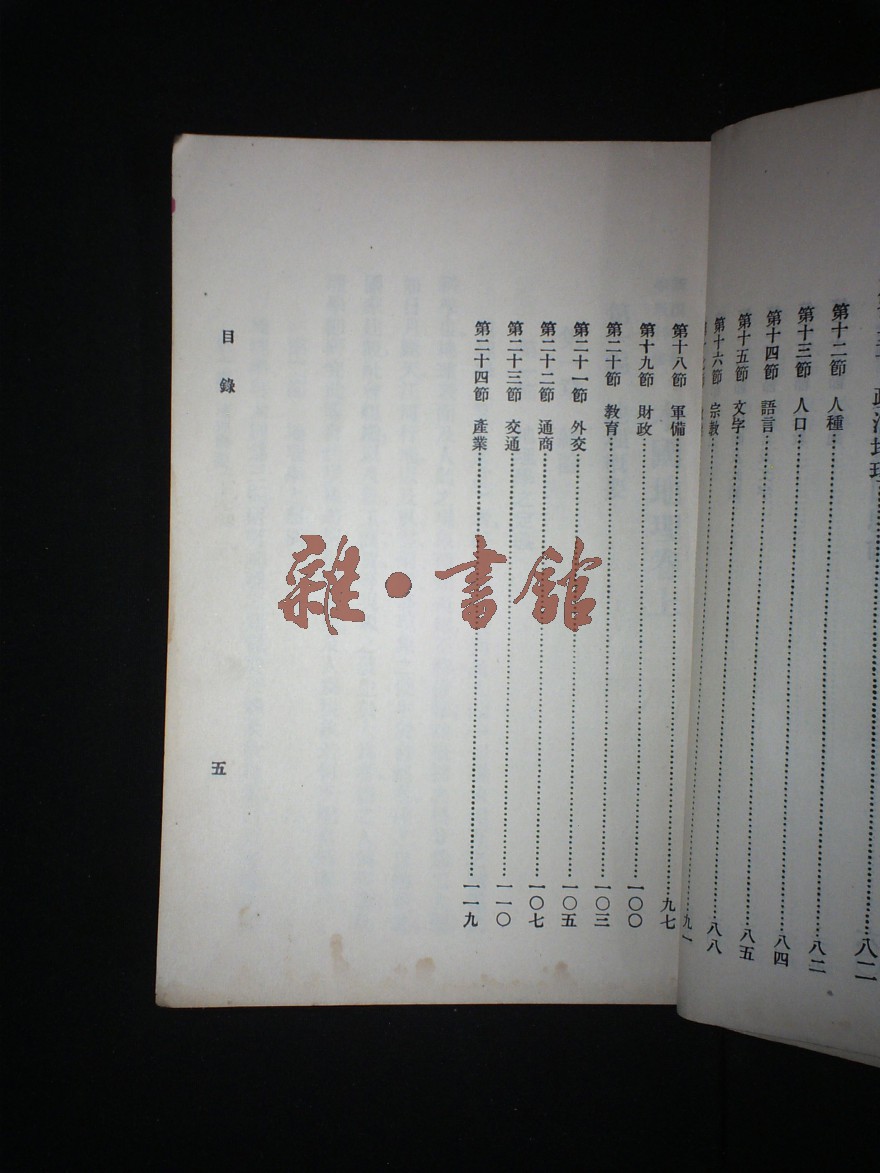 政治地理……八二
第十二節 人種……八二
第十三節 人口……八二
第十四節 語言……八四
第十五節 文字……八五
第十六節 宗教……八八
九一
第十八節 軍備……九七
第十九節 財政……一〇〇
第二十節 教育……一〇三
第二十一節 外交……一〇五
第二十二節 通商……一〇七
第二十三節 交通……一一〇
第二十四節 產業……一一九
目錄
五
雜·書館